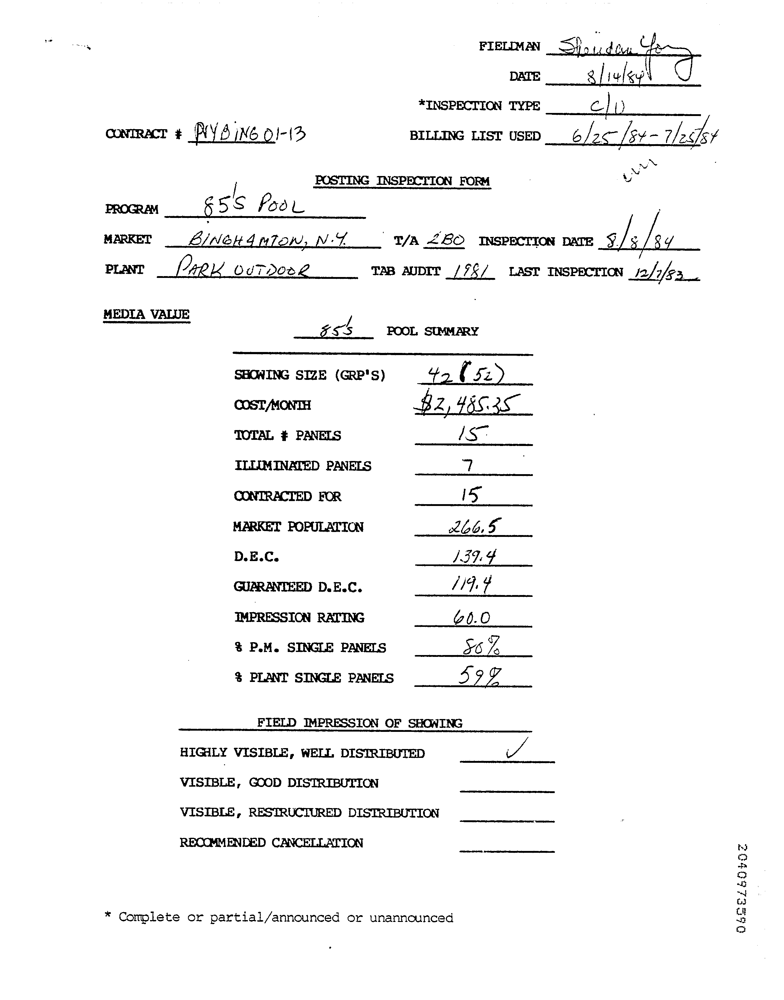 FIELDMAN Sheridan
DATE 8/14/84
*INSPECTION TYPE C/U
CONTRACT # NYBING01-13 BILLING LIST USED 6/25/84-7/25/84
POSTING INSPECTION FORM
PROGRAM 85's POOL
MARKET BINGHAMTON, N.Y. T/A 2BO INSPECTION DATE 8/8/84
PLANT PARK OUTDOOR TAB AUDIT 1981 LAST INSPECTION 12/7/83
MEDIA VALUE
85's POOL SUMMARY
SHOWING SIZE (GRP'S) 42 (52)
COST/MONTH $2,485.35
TOTAL # PANELS 15
ILLUMINATED PANELS 7
CONTRACTED FOR 15
MARKET POPULATION 266.5
D.E.C. 139.4
GUARANTEED D.E.C. 119.4
IMPRESSION RATING 60.0
% P.M. SINGLE PANELS 80%
% PLANT SINGLE PANELS 59%
FIELD IMPRESSION OF SHOWING
HIGHLY VISIBLE, WELL DISTRIBUTED ✓
VISIBLE, GOOD DISTRIBUTION
VISIBLE, RESTRUCTURED DISTRIBUTION
RECOMMENDED CANCELLATION
* Complete or partial/announced or unannounced
2040973590